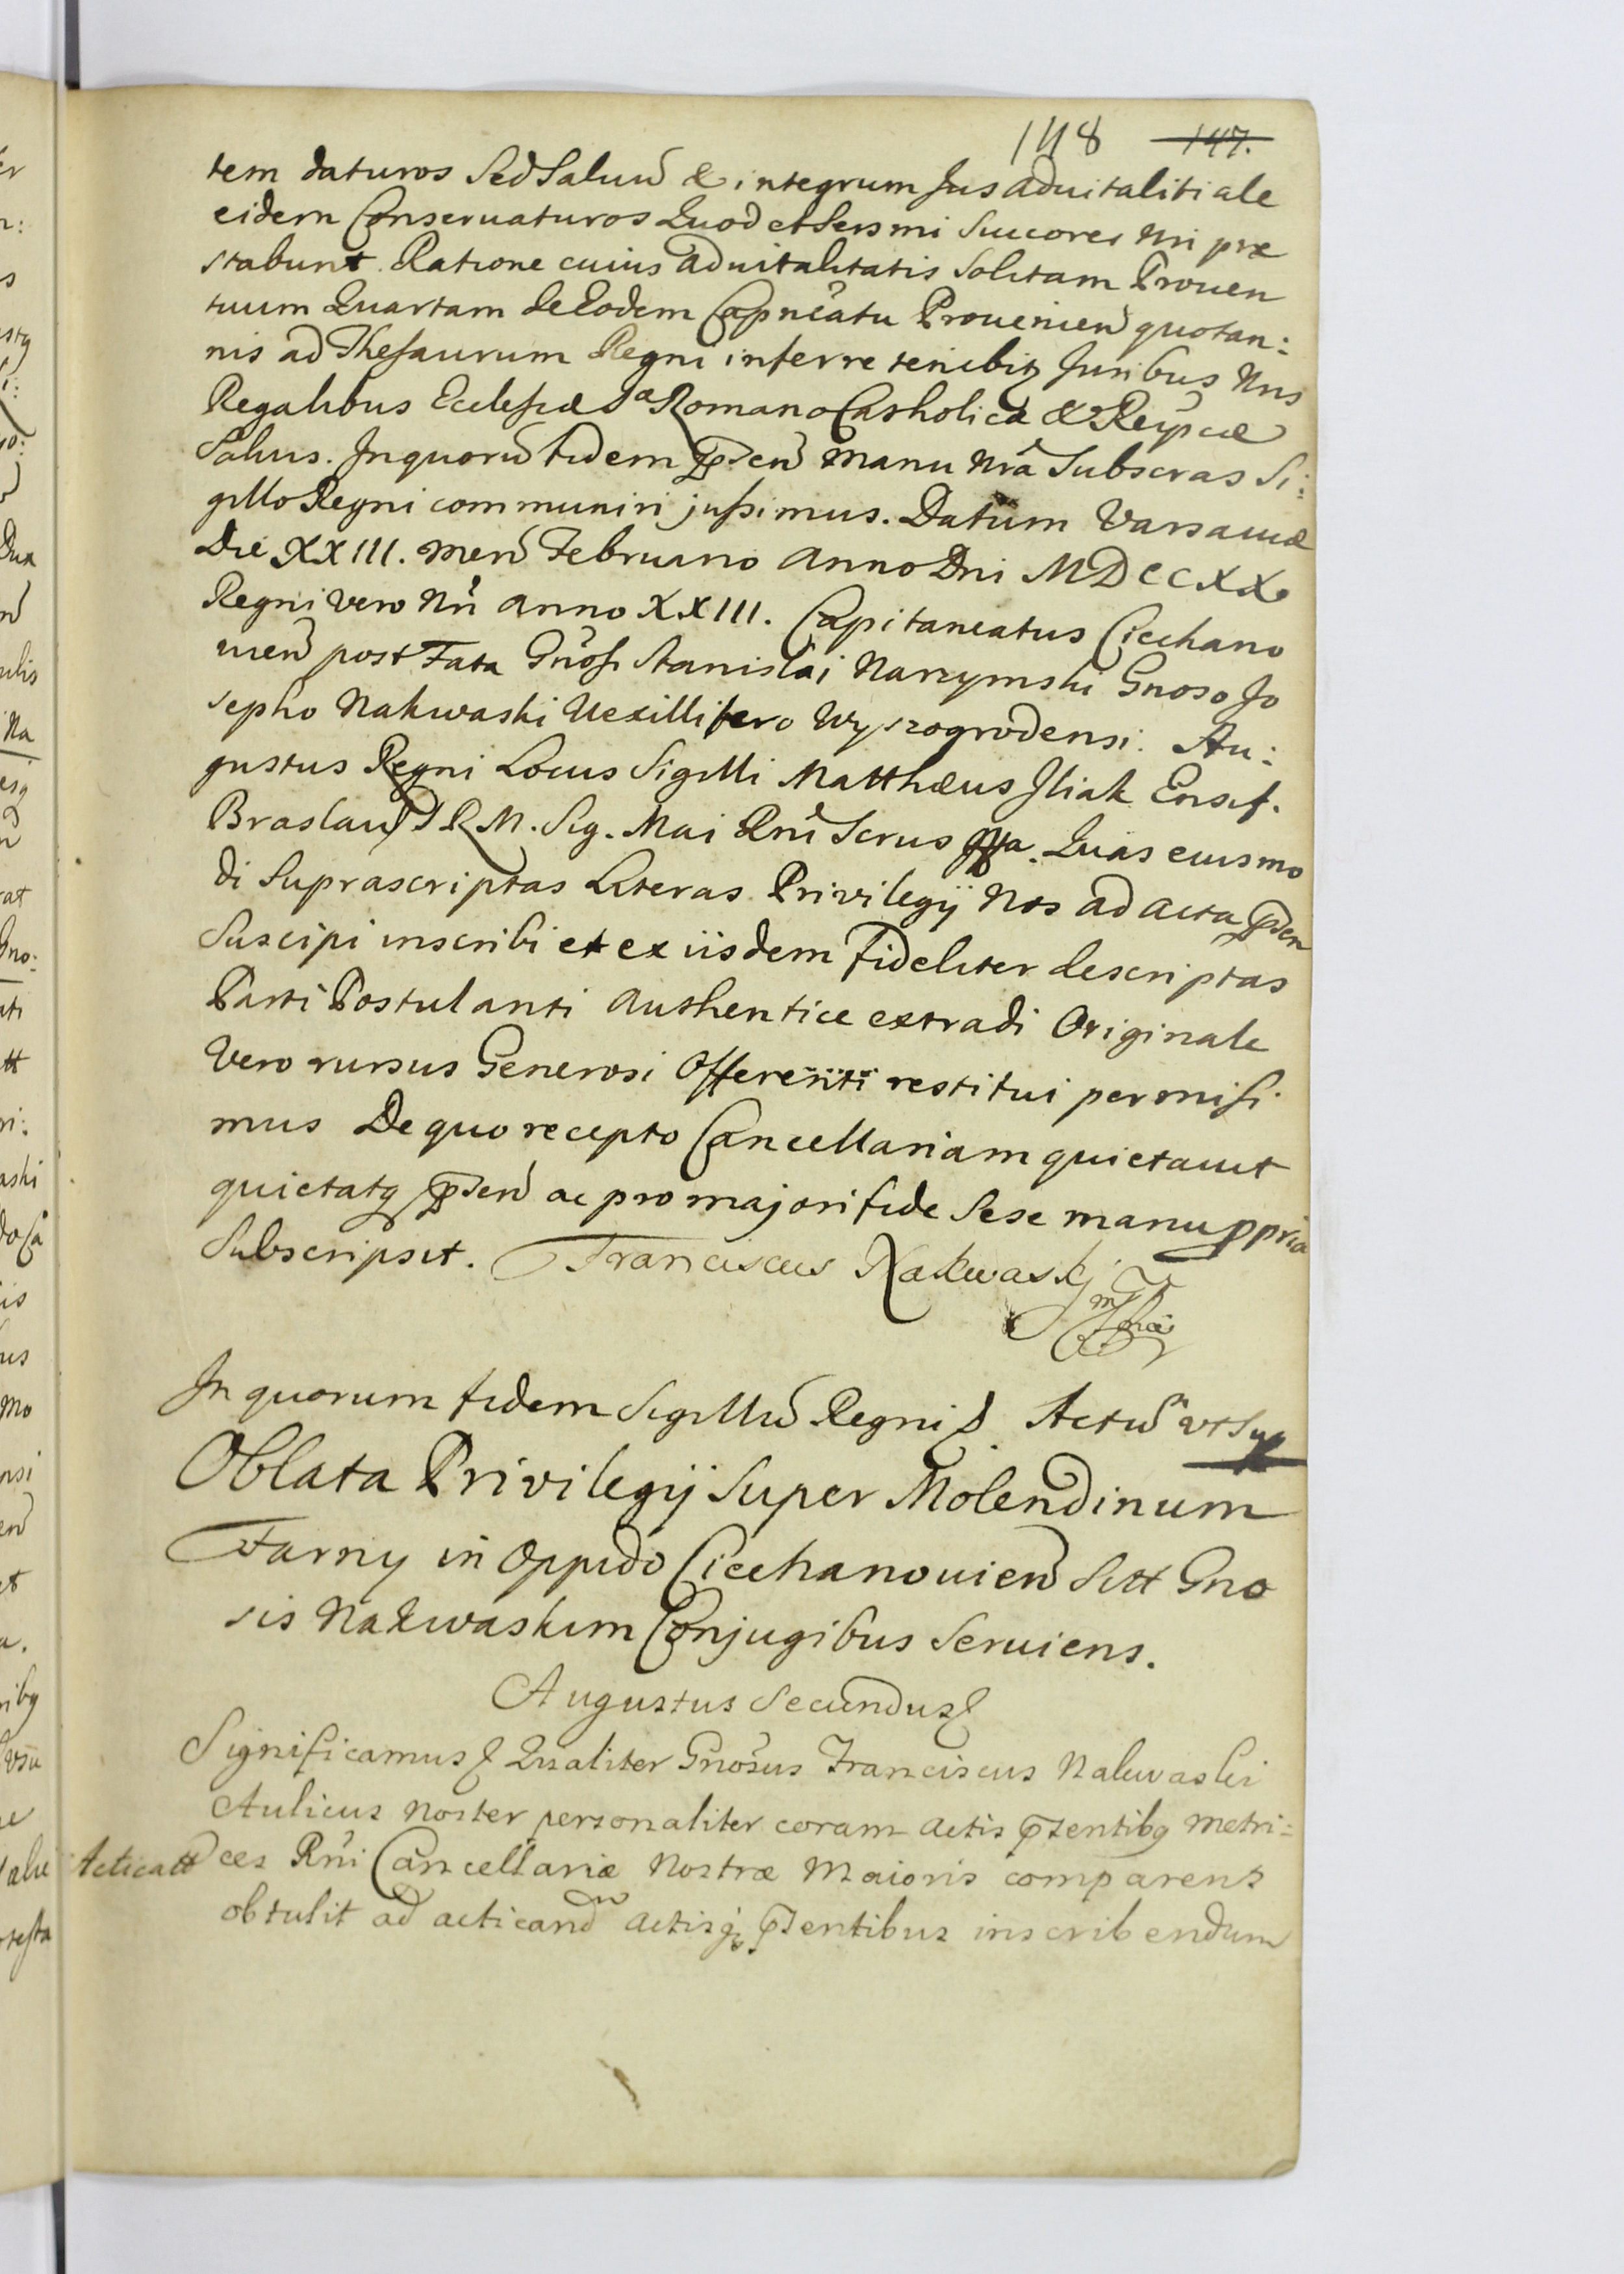 148 147.
tem daturos Sed Saluũ & integrum Jus aduitalitiale
eidem Conseruaturos Quod et Sersmi Succores Nri præ
stabunt. Ratione cuius aduitalitatis Solitam Prouen
tuum Quartam de Eodem Capneatu Prouenien quotan:
nis ad Thesaurum Regni inferre tenebitꝫ Juribus Nris
Regalibus Ecclesiæ Romano Catholicæ & Reipcæ
Saluis. In quorũ fidem pñten manu Nrã Subscras Si:
gillo Regni communiri jussimus. Datum Varsauiæ
Die XXIII. men Februario Anno Dni MDCCXX
Regni vero Nri anno XXIII. Capitaneatus Ciechano
uien post Fata Gnosi Stanislai Narzymski Gnoso Jo
sepho Nakwaski Vexillifero Wyszogrodensi. Au:
gustus Regni Locus Sigilli Matthæus Iliak Ensif.
Braslau S R M. Sig. Mai Rni Scrus Quas eiusmo
di Suprascriptas Literas Privilegij Nos ad acta pñten
Suscipi inscribi et ex iisdem fideliter descriptas
Parti Postulanti Authentice extradi Originale
Vero rursus Generosi Offerenti restitui permisi
mus De quo recepto Cancellariam quietauit
quietatqꝫ pñten ac pro majori fide Sese manu ppria
Subscripsit. Franciscus Nakwaskj
mpria
In quorum fidem Sigillũ Regni Actũ ut Sup
Oblata Privilegij Super Molendinum
Farny in Oppido Ciechanouien Sitt Gno
sis Nakwaskim Conjugibus Seruiens.
Augustus Secundus
Significamus Qualiter Gnosus Franciscus Nakwaski
Aulicus Noster personaliter coram Actis pñtentibꝫ Metri=
Acticatt
ces Rni Cancellariæ Nostræ Maioris comparens
obtulit ad acticandũ actisqꝫ pñtentibus inscribendum